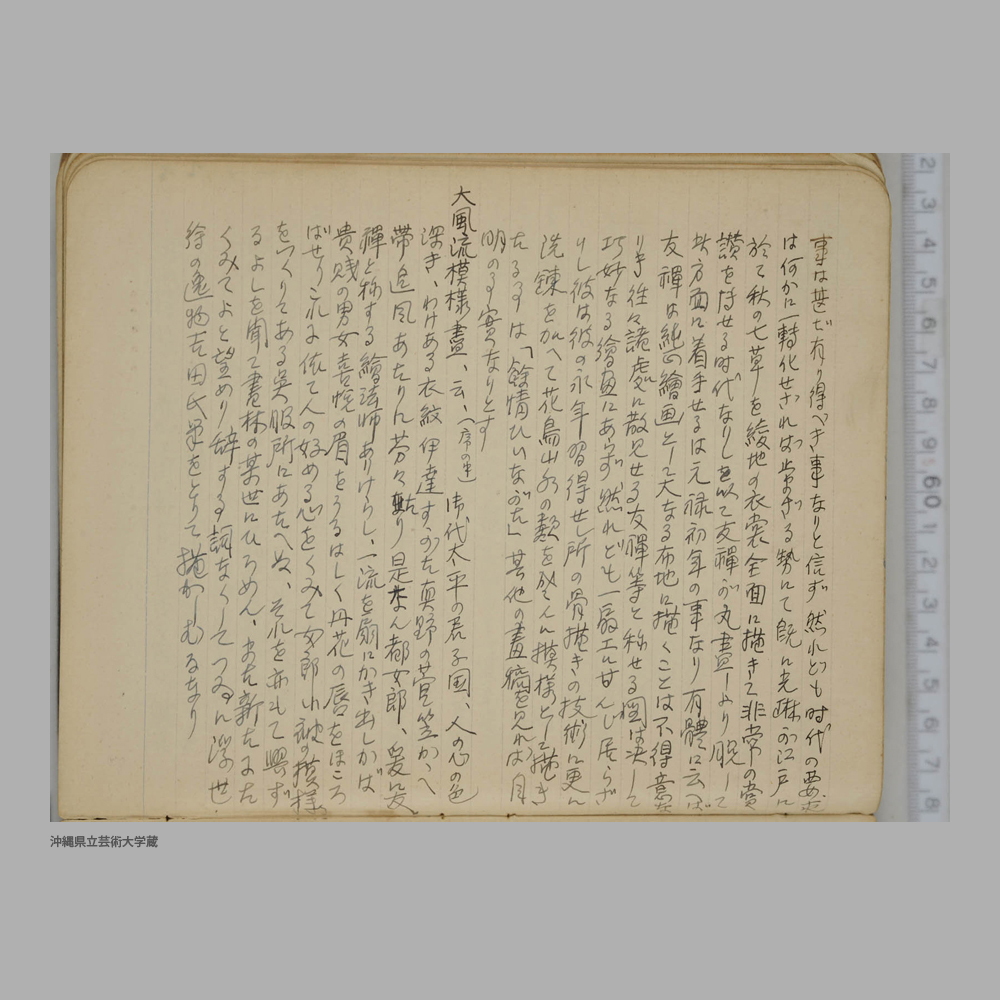 事は甚だ有り得べき事なりと信ず然れども時代の要求
は何かに転化せざれば止まざる勢にて既に光琳が江戸に
於て秋の七草を綾地の衣裳全面に描きて非常の賞
讃を得せる時代なりしを以て友禅が丸畫より脱して
此方面に着手せるは元禄初年の事なり有體に云へば
友禅は純繪画として大なる布地に描くことは不得意
り手往々諸處に散見せる友禅筆と称せる 決して
巧妙なる繪画にあらず然れども一扇工に甘んじ居らざ
りし彼は彼の永年習得せし所の骨描きの技術に更に
洗錬を加へて花鳥山水の類を 模様として描き
たるは「餘情ひいながた」其他の畫 を見れば自
明のなりとす
大風流模様畫、云、(序の 御代太平の君子国、人の心の色
深き、わけある衣紋伊達すがた真野の菅笠かへ
帯 風あたりに芬々 り是なん都女郎、爰に友
禅と称する繪法師ありけらし、一流を扇にかき出しかば
貴賤の男女喜悦の眉をうるはしく丹花の唇をほころ
ばせりこれに依て人の好める心をくみて女郎小袖の模様
をつくりてある呉服所にあたへぬ、それを亦もて興ず
るよしを聞て書林の某世にひろめん、また新たにま
くみてよと望めり辞する詞なくしてつゐに浮世
絵の逸物吉田氏筆をとりて描かしむるなり
沖縄県立芸術大学蔵